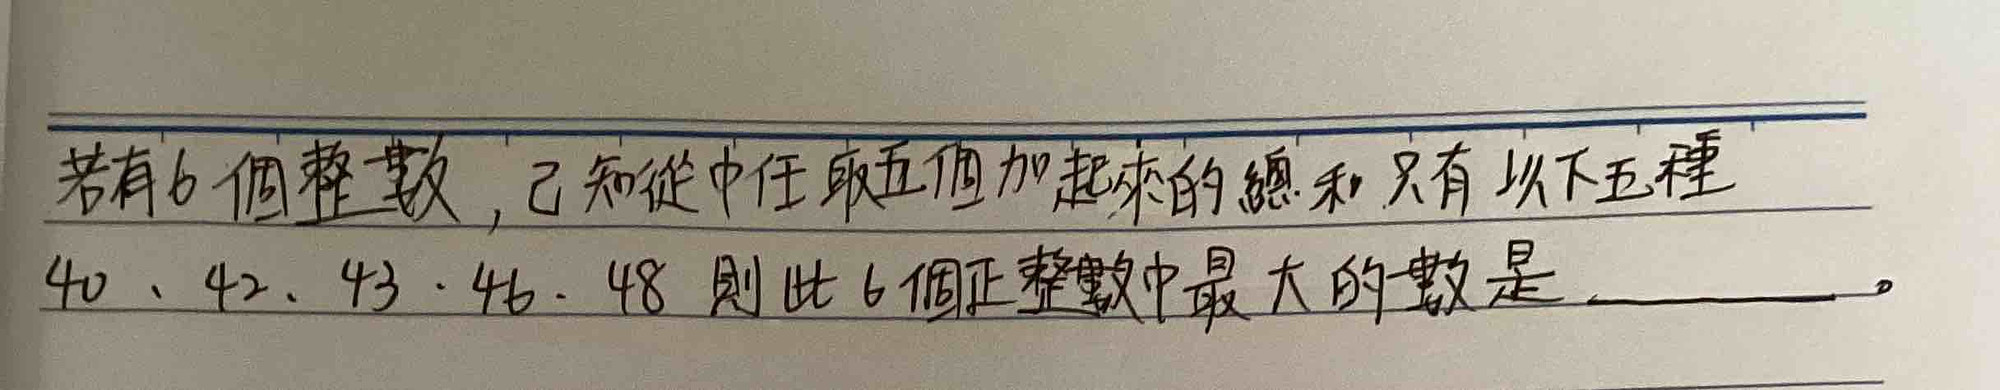 若有6個整數，已知從中任取五個加起來的總和只有以下五種
40、42、43、46、48 則此6個正整數中最大的數是＿＿＿＿。